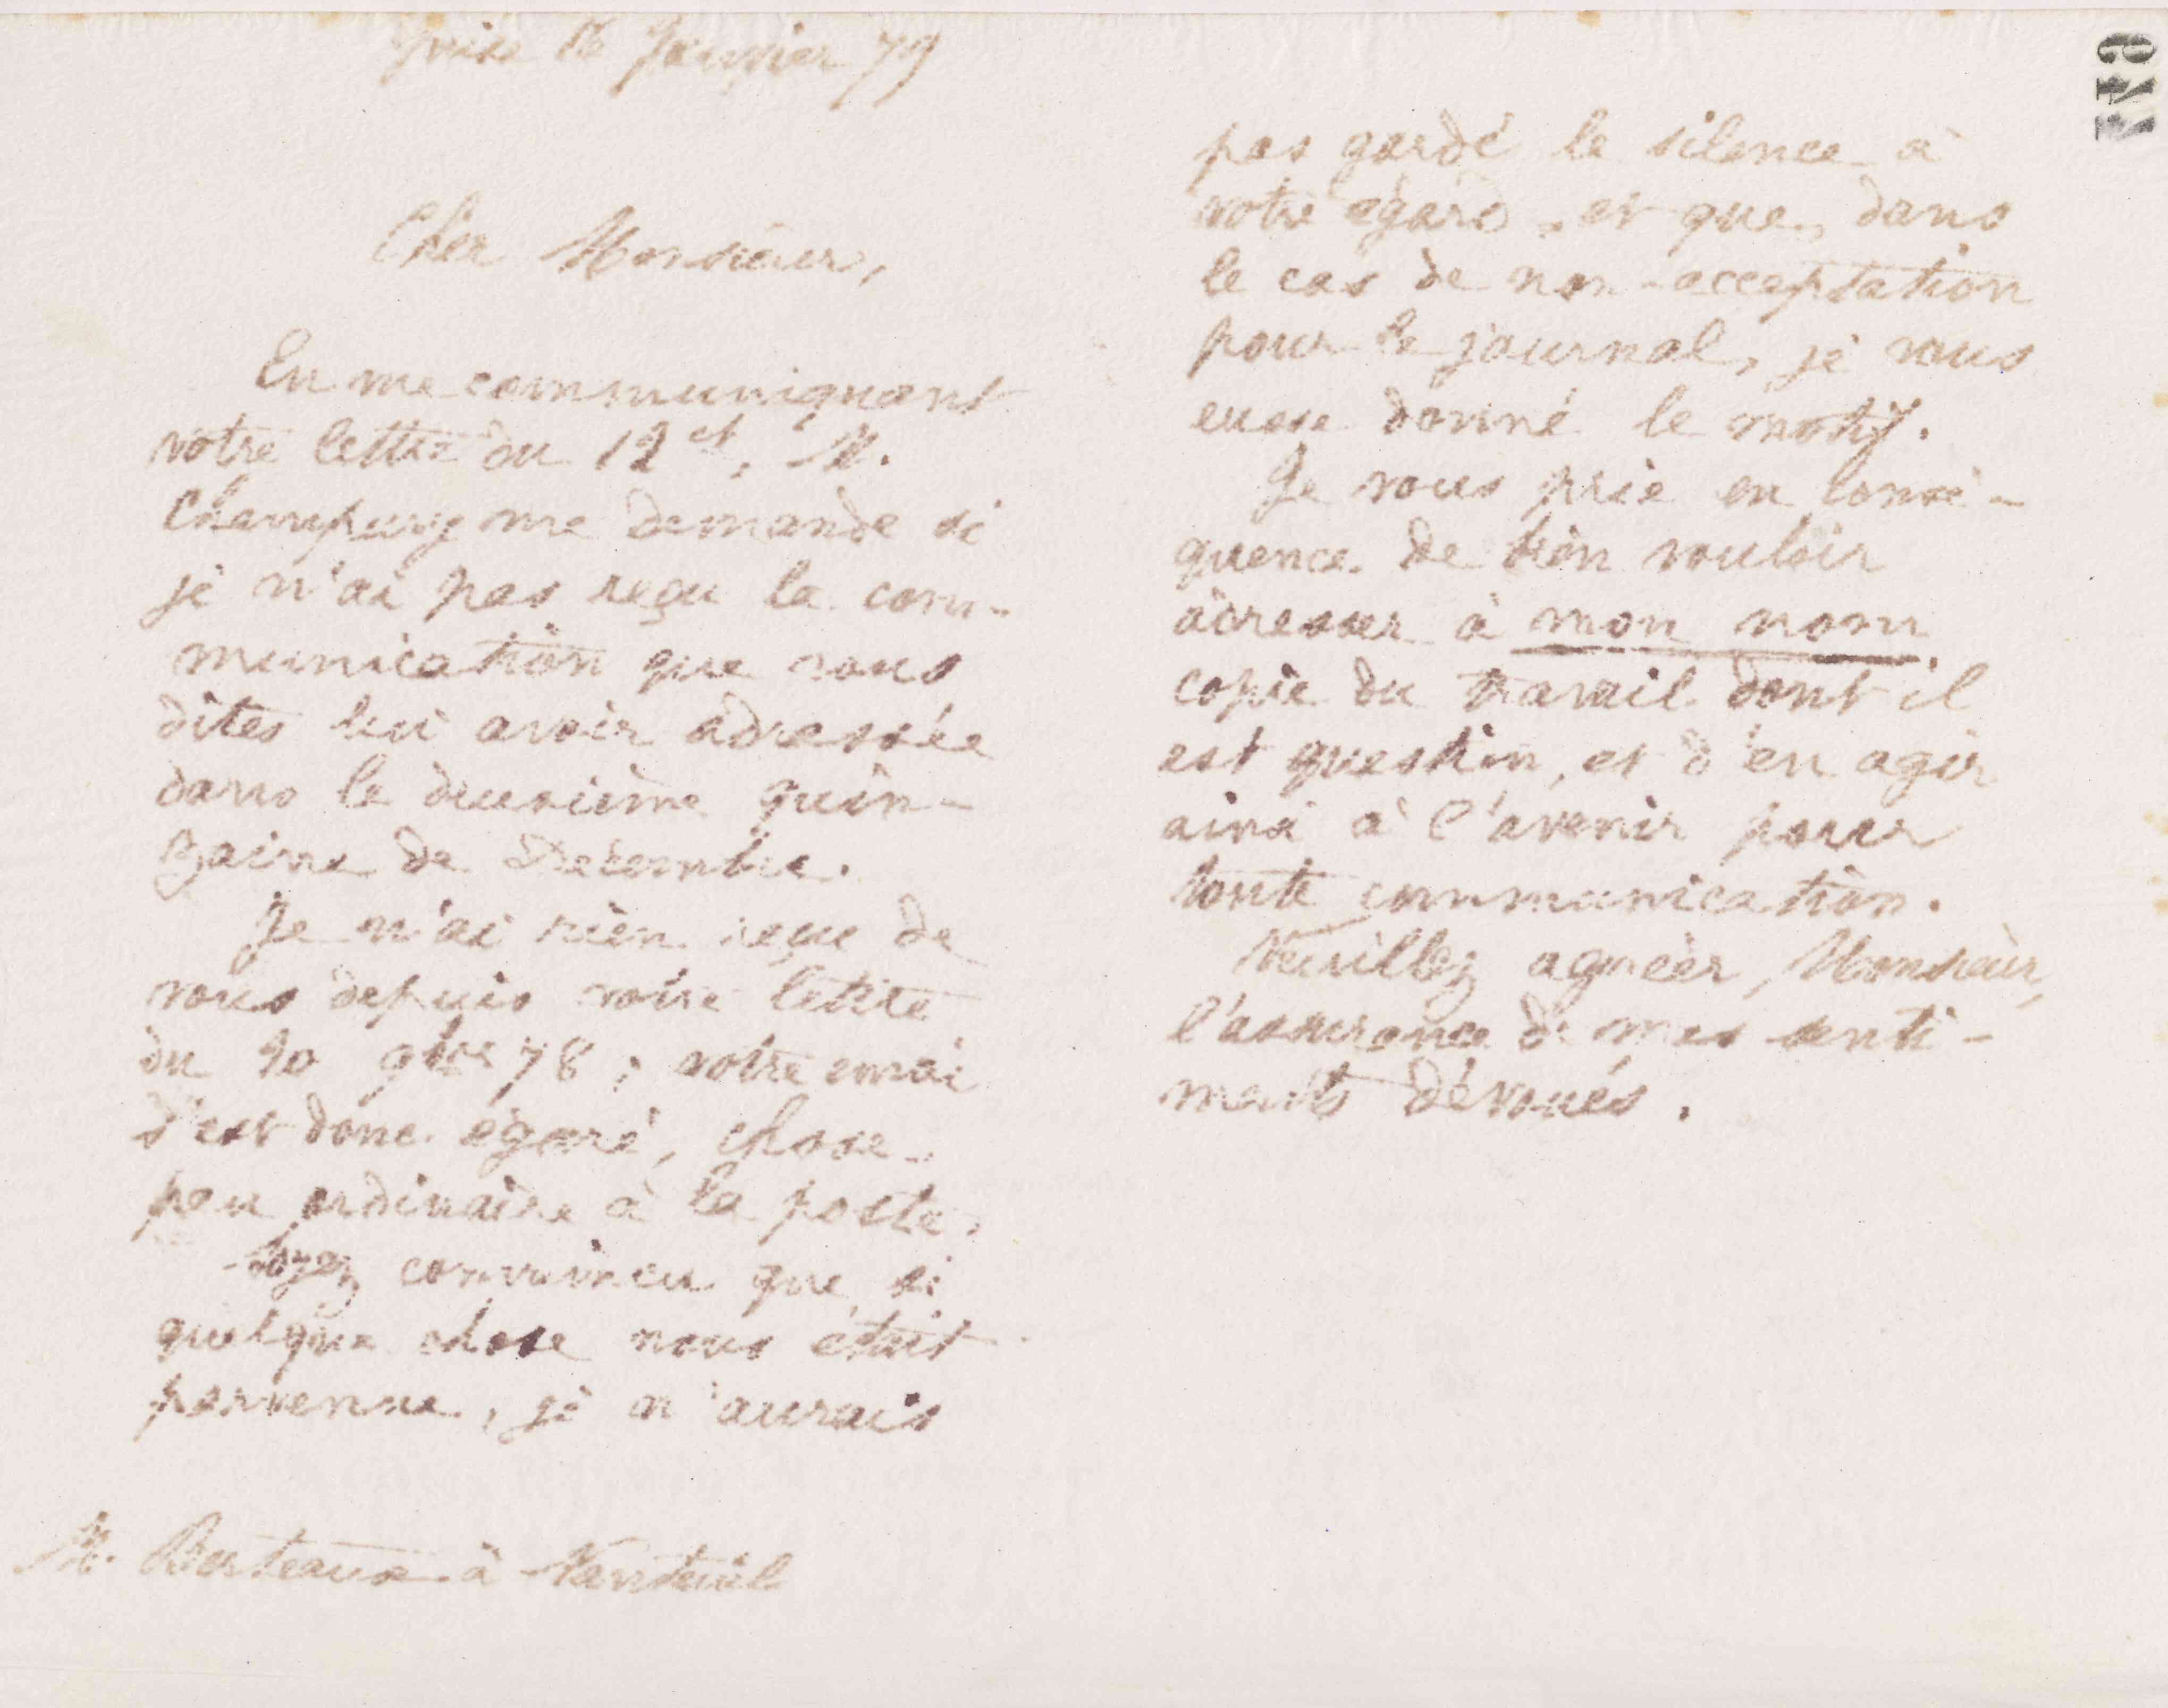 Guise 16 Janvier 79
Cher Monsieur,
En me communiquant
votre lettre du 12 ct, M.
Champury me demande si
je n'ai pas reçu la com-
munication que vous
dites lui avoir adressée
dans la deuxième quin-
zaine de Décembre.
Je n'ai rien reçu de
vous depuis votre lettre
du 9bre 78 ; votre envoi
s'est donc égaré, chose
peu ordinaire à la poste.
Soyez convaincu que, si
quelque chose nous était
parvenue, je n'aurais
M. Berteaux à Nanteuil
pas gardé le silence à
votre égard, et que, dans
le cas de non-acceptation
pour le journal, je vous
eusse donné le motif.
Je vous prie en consé-
quence de bien vouloir
adresser à mon nom
copie du travail dont il
est question, et d'en agir
ainsi à l'avenir pour
toute communication.
Veuillez agréer, Monsieur,
l'assurance de mes senti-
ments dévoués.